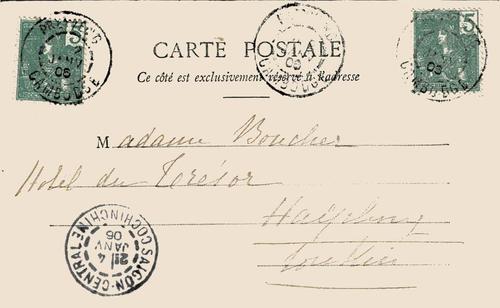 5
CAMBODGE
JANV
06
5
CAMBODGE
06
CAMBODGE
06
CARTE POSTALE
Ce côté est exclusivement réservé à l'adresse
Madame Boucher
Hotel du Trésor
Haïphong
Tonkin
SAIGON-CENTRAL
COCHINCHINE
4
JANV
06